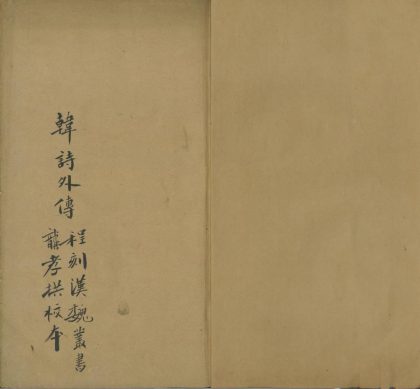 韓詩外傳
程刻漢魏叢書
龔孝拱校本